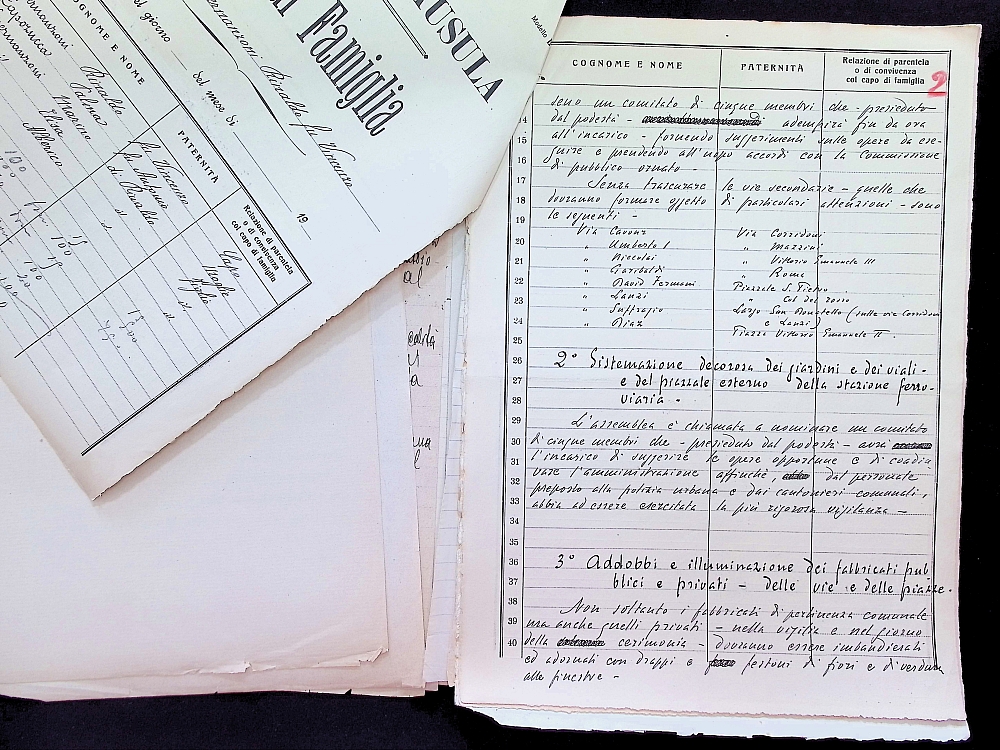 USULA
di Famiglia
Rinaldo fu Vincenzo
del giorno
del mese di
19
COGNOME E NOME
PATERNITÀ
Relazione di parentela
o di convivenza
col capo di famiglia
Rinaldo
fu Vincenzo
Capo
Palma
fu Antonio
Moglie
Marino
di Rinaldo
Figlio
Elisa
id
id
Alberico
Modello
COGNOME E NOME
PATERNITÀ
Relazione di parentela
o di convivenza
col capo di famiglia
2
seno un comitato di cinque membri che - presieduto
14 dal podestà - adempirà fin da ora
15 all'incarico - fornendo suggerimenti sulle opere da ese-
16 guire e prendendo all'uopo accordi con la Commissione
di pubblico ornato -
17 Senza trascurare le vie secondarie - quelle che
18 dovranno formare oggetto di particolari attenzioni - sono
19 le seguenti -
Via Cavour Via Corridoni
20 " Umberto I " Mazzini
21 " Niccolai " Vittorio Emanuele III
" Garibaldi " Roma
22 " David Fermani Piazzale S. Pietro
23 " Lanzi " Col del rosso
" Suffragio Largo San Donatello (sulla via Corridoni
24 " Diaz e Lanzi)
25 Piazza Vittorio Emanuele II.
26 2° Sistemazione decorosa dei giardini e dei viali -
27 e del piazzale esterno della stazione ferro-
28 viaria -
29 L'assemblea è chiamata a nominare un comitato
30 di cinque membri che - presieduto dal podestà - avrà
31 l'incarico di suggerire le opere opportune e di coadiu
32 vare l'amministrazione affinchè, dal personale
33 preposto alla polizia urbana e dai cantonieri comunali,
abbia ad essere esercitata la più rigorosa vigilanza -
34
35
36 3° Addobbi e illuminazione dei fabbricati pub
37 blici e privati - delle vie e delle piazze -
38 Non soltanto i fabbricati di pertinenza comunale
39 ma anche quelli privati - nella vigilia e nel giorno
40 della cerimonia - dovranno essere imbandierati
ed adornati con drappi e festoni di fiori e di verdura
alle finestre -